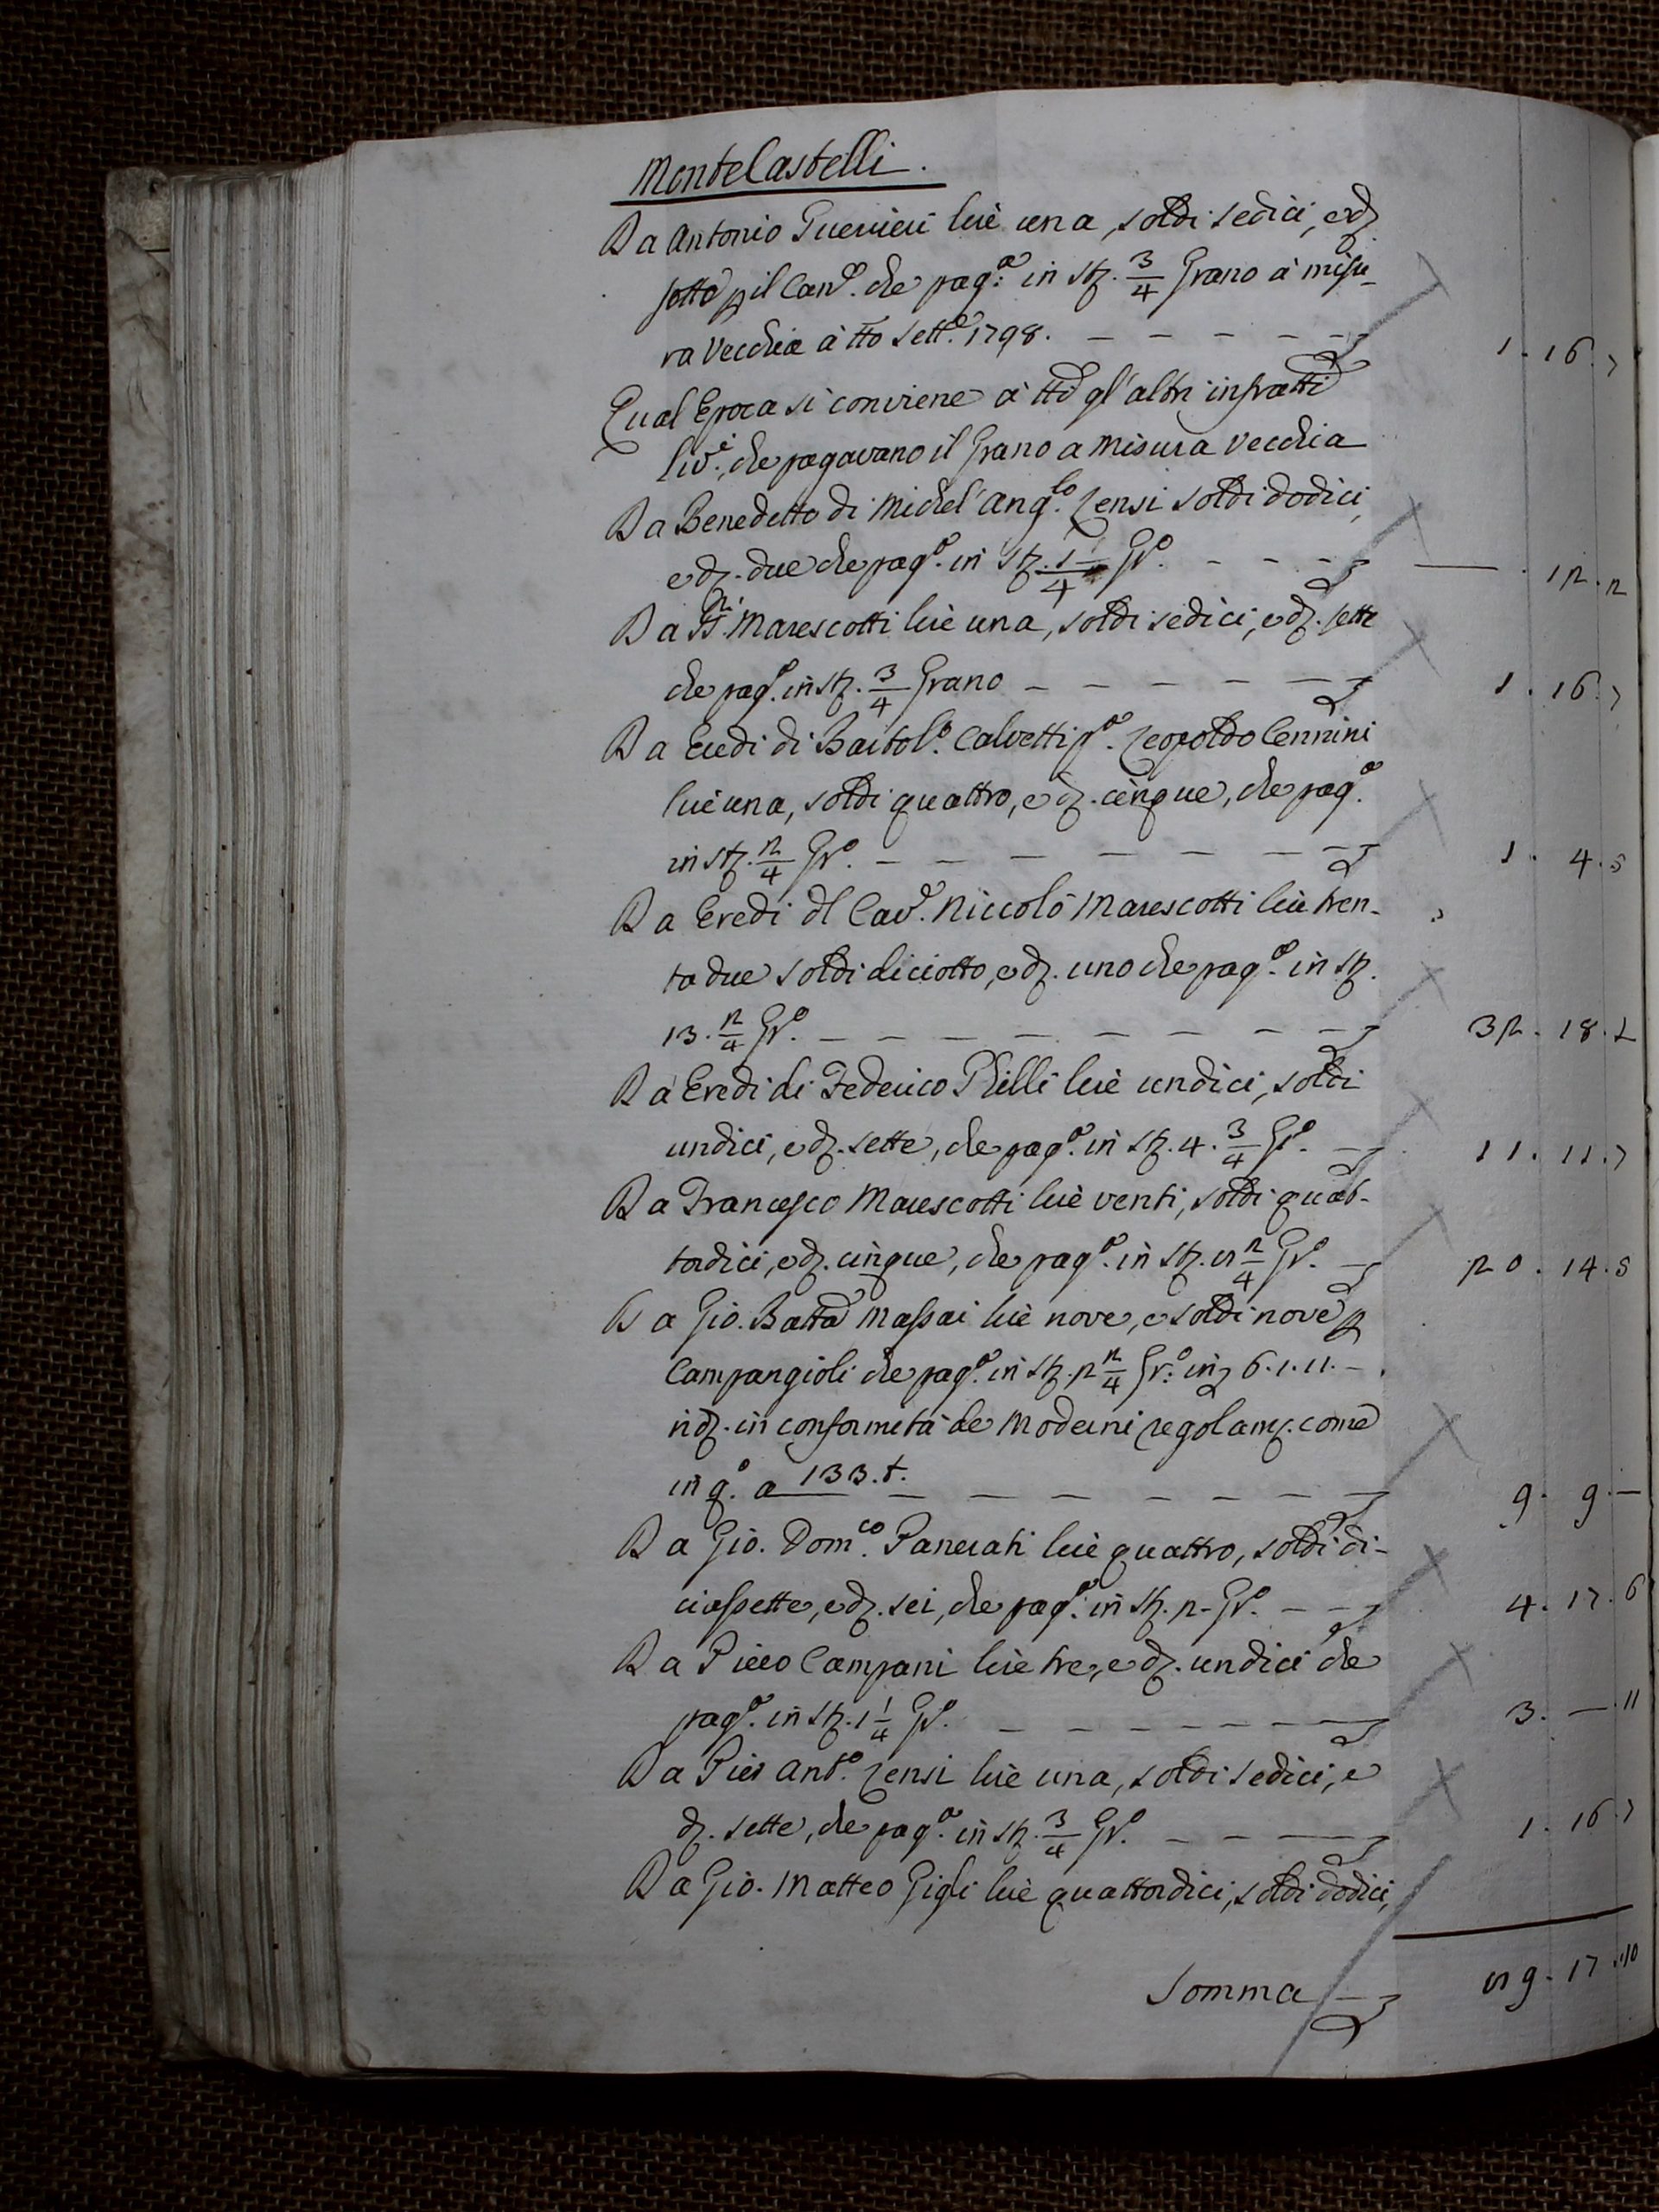 MonteCastelli.
Da Antonio Guerrieri lire una, soldi sedici, e d.
sette p il Can.e che pag.a in st. 3/4 Grano à misu-
ra Vecchia à tto Sett.e 1798. — — — — — 1. 16. 7
Qual Epoca si conviene à tti gl'altri infratti
liv.i, che pagavano il Grano a misura vecchia
Da Benedetto di Michel'Ang.lo Zensi soldi dodici,
e d. due che pag.a in st. 1/4 Gr.o — — — — . 12. 2
Da Marescotti lire una, soldi sedici, e d. sette
che pag.a in st. 3/4 Grano — — — — — 1. 16. 7
Da Eredi di Bartol.o Calvetti p.o Leopoldo Cennini
lire una, soldi quattro, e d. cinque, che pag.a
in st. 2/4 Gr.o — — — — — — — 1. 4. 5
Da Eredi dl Cav.e Niccolò Marescotti lire tren-
ta due soldi diciotto, e d. uno che pag.a in st.
13. 2/4 Gr.o — — — — — — — — 32. 18. 1
Da Eredi di Federico Lilli lire undici, soldi
undici, e d. sette, che pag.a in st. 4. 3/4 Gr.o — 11. 11. 7
Da Francesco Marescotti lire venti, soldi quat-
tordici, e d. cinque, che pag.a in st. 8 2/4 Gr.o — 20. 14. 5
Da Gio. Batta Massai lire nove, e soldi nove p
Campangioli che pag.a in st. 2 2/4 Gr.o in 6. 1. 11. —
rid. in conformità de Moderni regolam. come
in q.o a 133. t. — — — — — — — 9. 9. —
Da Gio. Dom.co Panerati lire quattro, soldi di-
ciassette, e d. sei, che pag.a in st. 2 - Gr.o — — — 4. 17. 6
Da Piero Campani lire tre, e d. undici che
pag.a in st. 1 1/4 Gr.o — — — — — — 3. — . 11
Da Pier Ant.o Zensi lire una, soldi sedici, e
d. sette, che pag.a in st. 3/4 Gr.o — — — 1. 16. 7
Da Gio. Matteo Gigli lire quattordici, soldi dodici,
Somma — 89. 17. 10